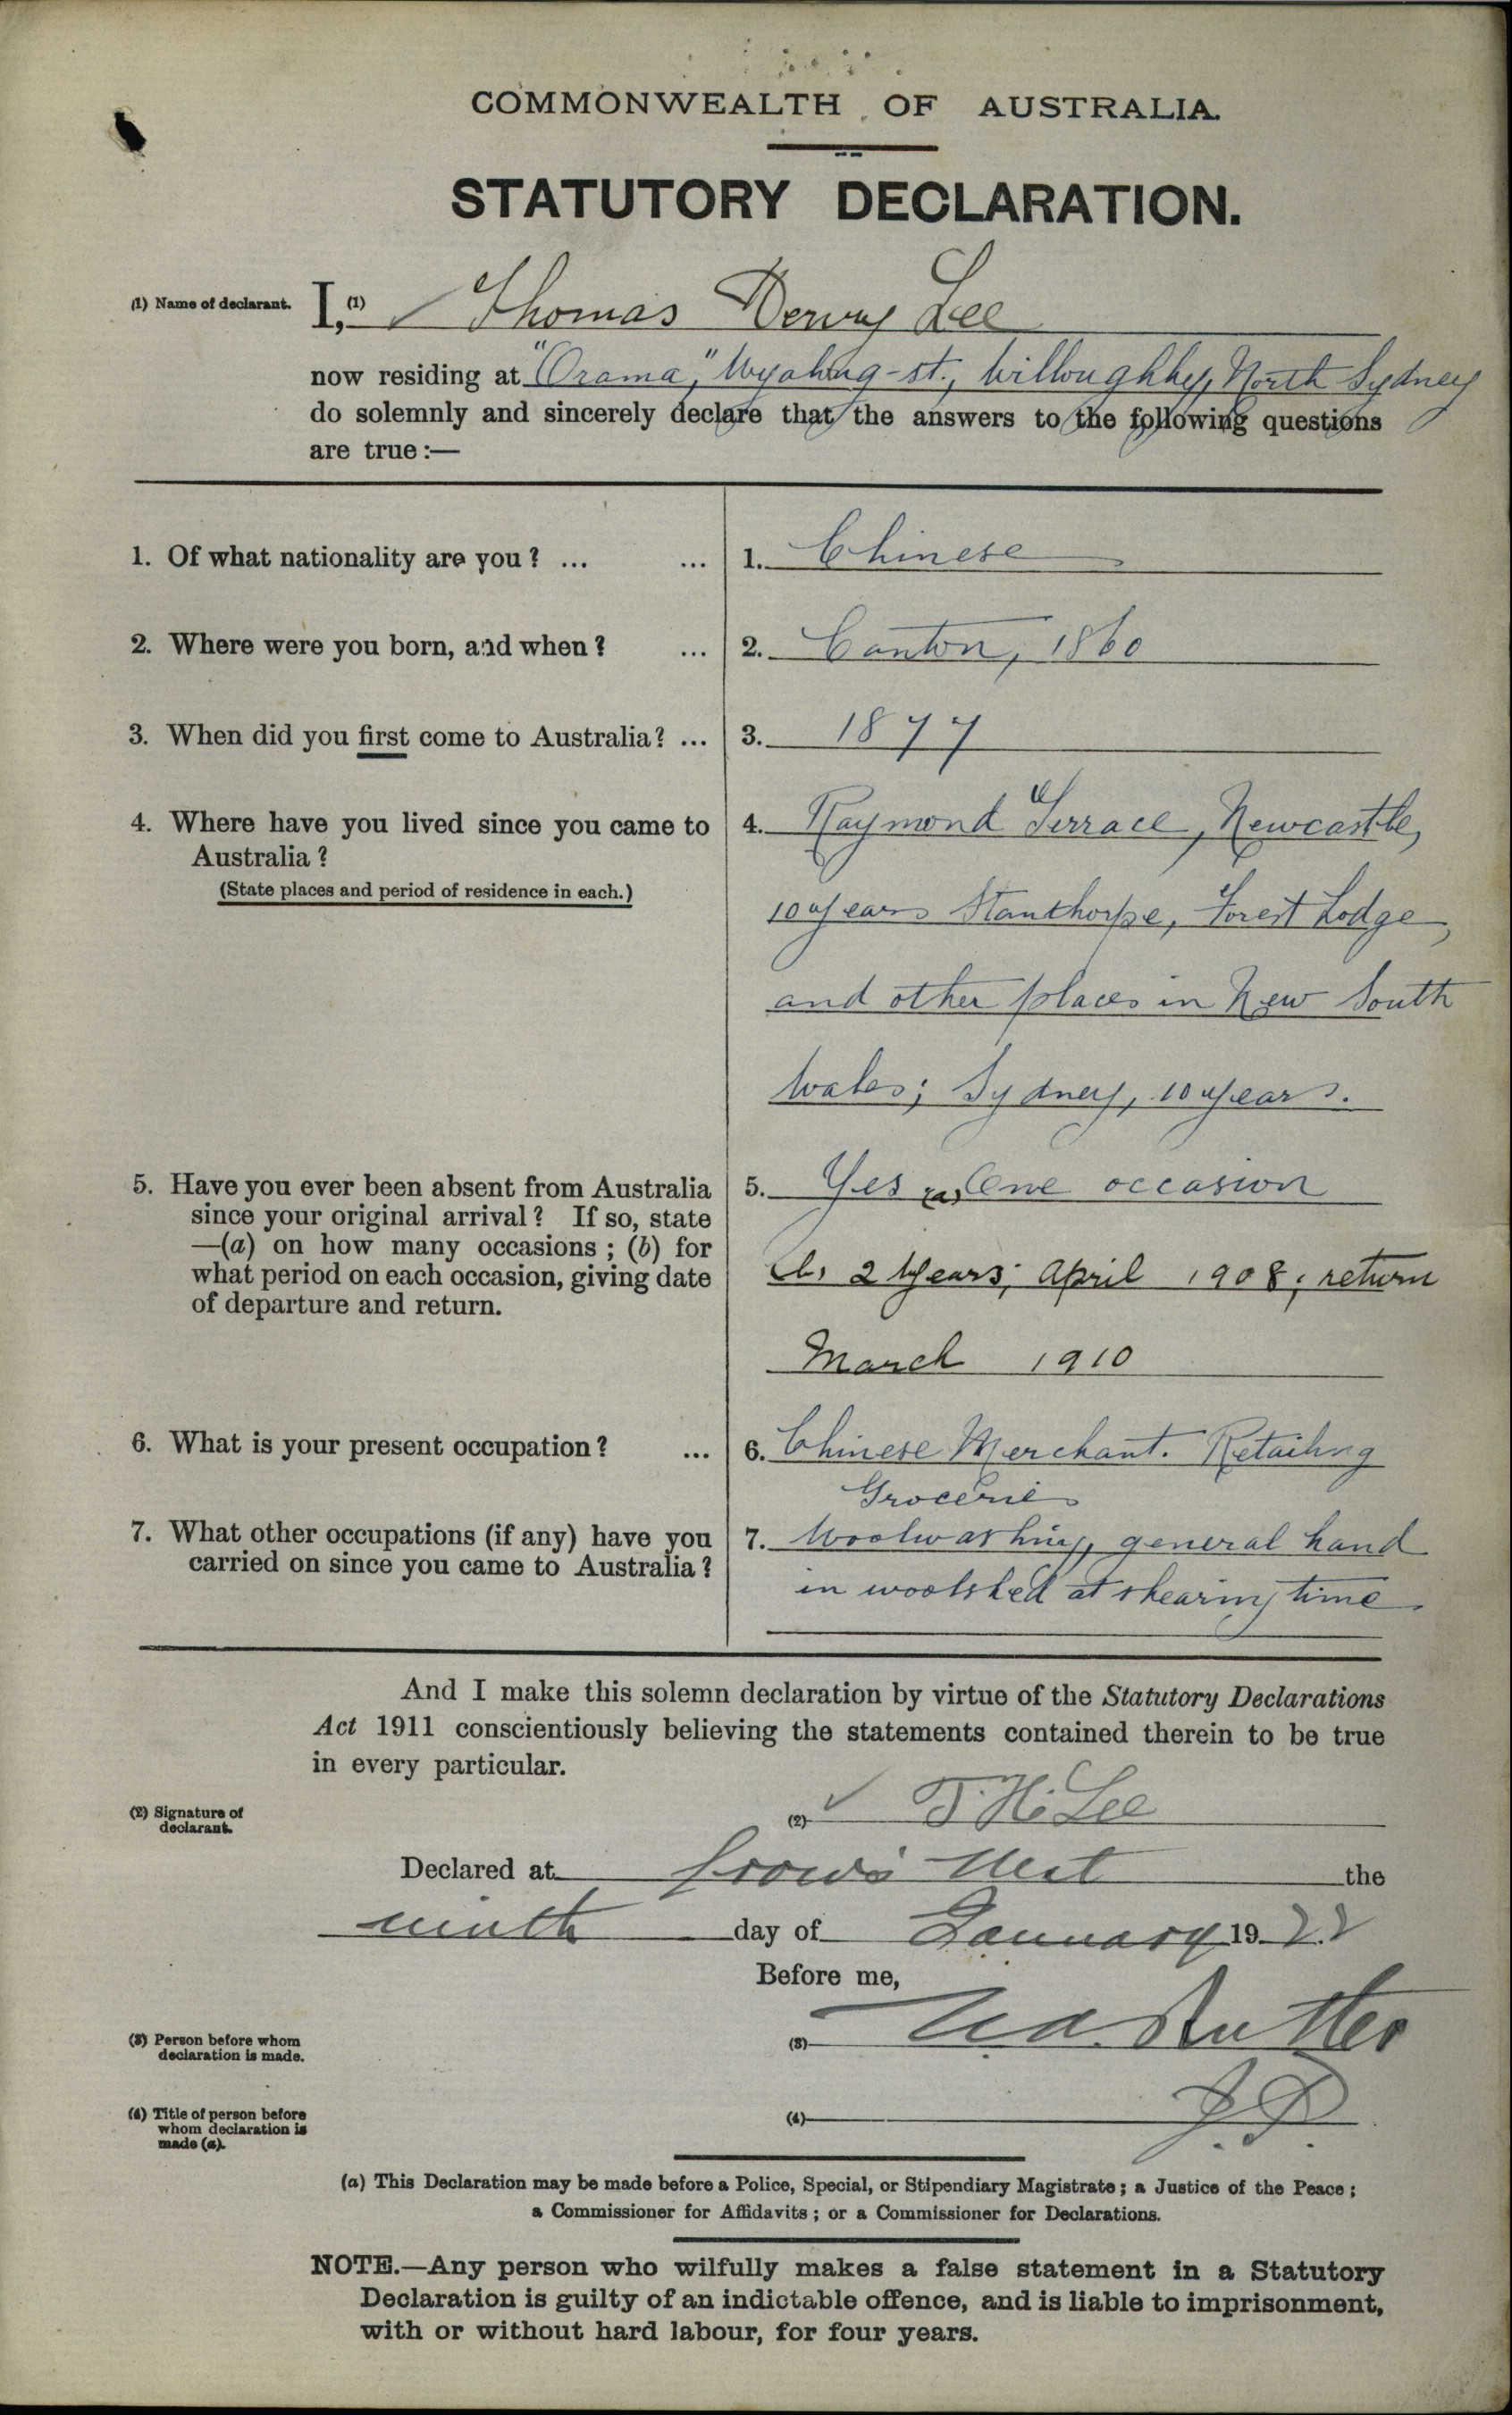 COMMONWEALTH OF AUSTRALIA.
STATUTORY DECLARATION.
(1) Name of declarant. I,(1) Thomas Henry Lee
now residing at "Orama," Wyalong-st., Willoughby, North Sydney
do solemnly and sincerely declare that the answers to the following questions
are true:—
1. Of what nationality are you? ... ... 1. Chinese
2. Where were you born, and when? ... 2. Canton, 1860
3. When did you first come to Australia? ... 3. 1877
4. Where have you lived since you came to 4. Raymond Terrace, Newcastle,
Australia?
(State places and period of residence in each.)
10 years Stanthorpe, Forest Lodge,
and other places in New South
Wales; Sydney, 10 years.
5. Have you ever been absent from Australia 5. Yes (a) One occasion
since your original arrival? If so, state
—(a) on how many occasions; (b) for
what period on each occasion, giving date (b) 2 Years; April 1908; return
of departure and return.
March 1910
6. What is your present occupation? ... 6. Chinese Merchant. Retailing
Groceries
7. What other occupations (if any) have you 7. Woolwashing, general hand
carried on since you came to Australia?
in woolshed at shearing time
And I make this solemn declaration by virtue of the Statutory Declarations
Act 1911 conscientiously believing the statements contained therein to be true
in every particular.
(2) Signature of
declarant.
(2) T. H. Lee
Declared at Crows Nest the
ninth day of January 1922
Before me,
(3) Person before whom
declaration is made.
(3)
(4) Title of person before
whom declaration is
made (a).
(4) J.P.
(a) This Declaration may be made before a Police, Special, or Stipendiary Magistrate; a Justice of the Peace;
a Commissioner for Affidavits; or a Commissioner for Declarations.
NOTE.—Any person who wilfully makes a false statement in a Statutory
Declaration is guilty of an indictable offence, and is liable to imprisonment,
with or without hard labour, for four years.